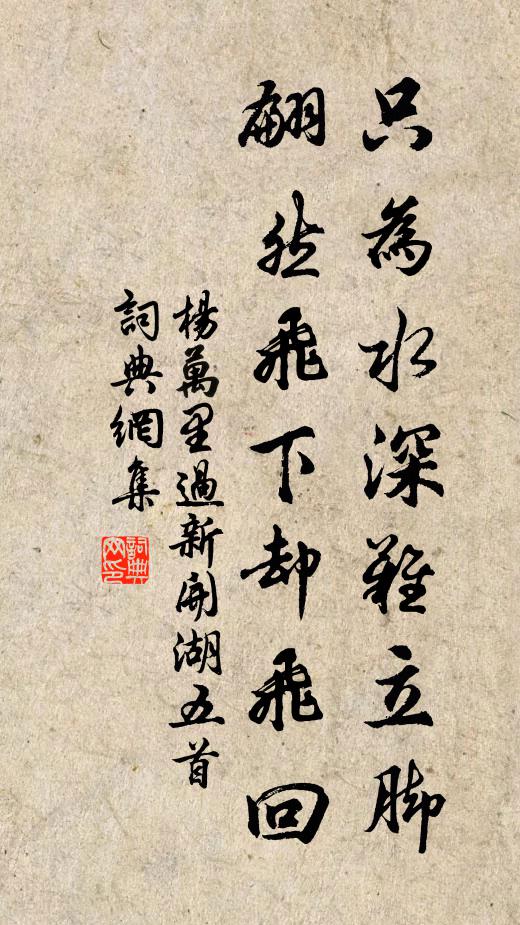 只為水深難立脚
翩然飛下却飛回
楊萬里過新開湖五首
詞典網集
詞典
网印